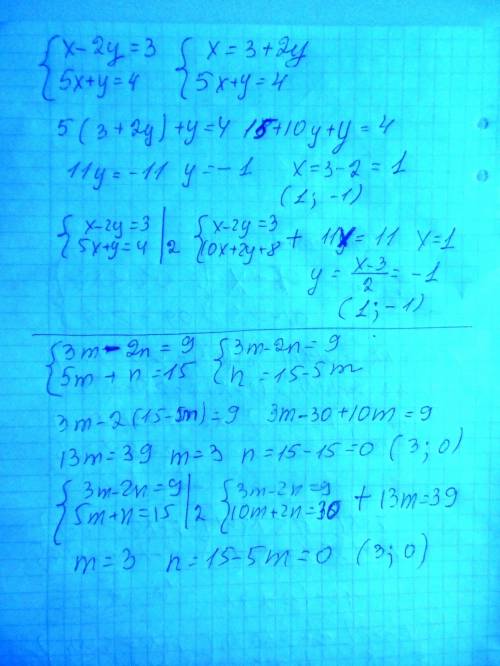 { x-2y=3 { x=3+2y
{ 5x+y=4 { 5x+y=4
5(3+2y)+y=4 15+10y+y=4
11y=-11 y=-1 x=3-2=1
(1; -1)
{ x-2y=3 | { x-2y=3
{ 5x+y=4 | 2 { 10x+2y+8 + 11x=11 x=1
y = (x-3)/2 = -1
(1; -1)
{ 3m-2n=9 { 3m-2n=9
{ 5m+n=15 { n=15-5m
3m-2(15-5m)=9 3m-30+10m=9
13m=39 m=3 n=15-15=0 (3; 0)
{ 3m-2n=9 | { 3m-2n=9
{ 5m+n=15 | 2 { 10m+2n=30 + 13m=39
m=3 n=15-5m=0 (3; 0)